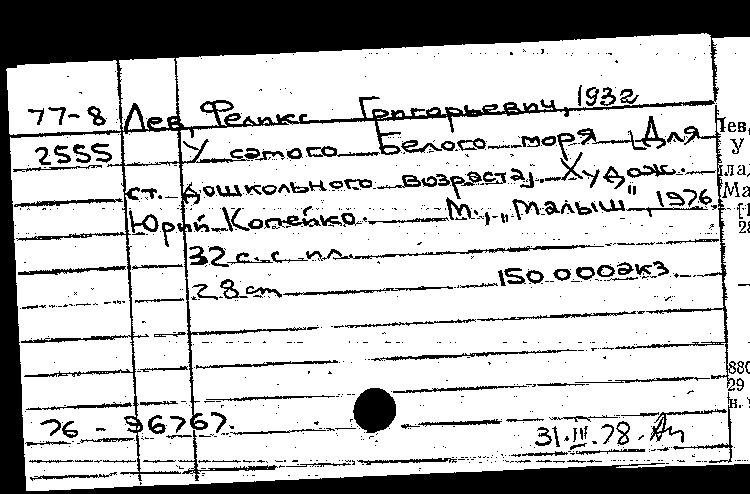 77-8 Лев, Феликс Григорьевич, 1932
2555 У самого Белого моря [Для
ст. дошкольного возраста]. Худож.
Юрий Копейко. М., „Малыш", 1976.
32 с. с ил.
28 см 150 000 экз.
76 - 96767.
31.III.78.
Лев,
У
[1
28
880
29
н.